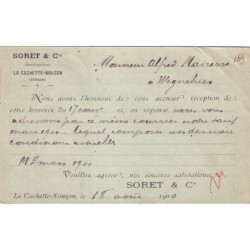 SORET & Cie
LA CACHETTE-NOUZON
Monsieur Alfred Mairesse
à Wignehies
Nous avons l'honneur de vous accuser réception de
votre honorée du 17 cour^t et, en réponse nous vous
adressons par ce même courrier notre tarif
mars 1900 lequel comporte nos dernières
conditions actuelles
Mars 1900
Veuillez agréer, nos sincères salutations.
SORET & Cie
La Cachette-Nouzon, le 18 août 1900